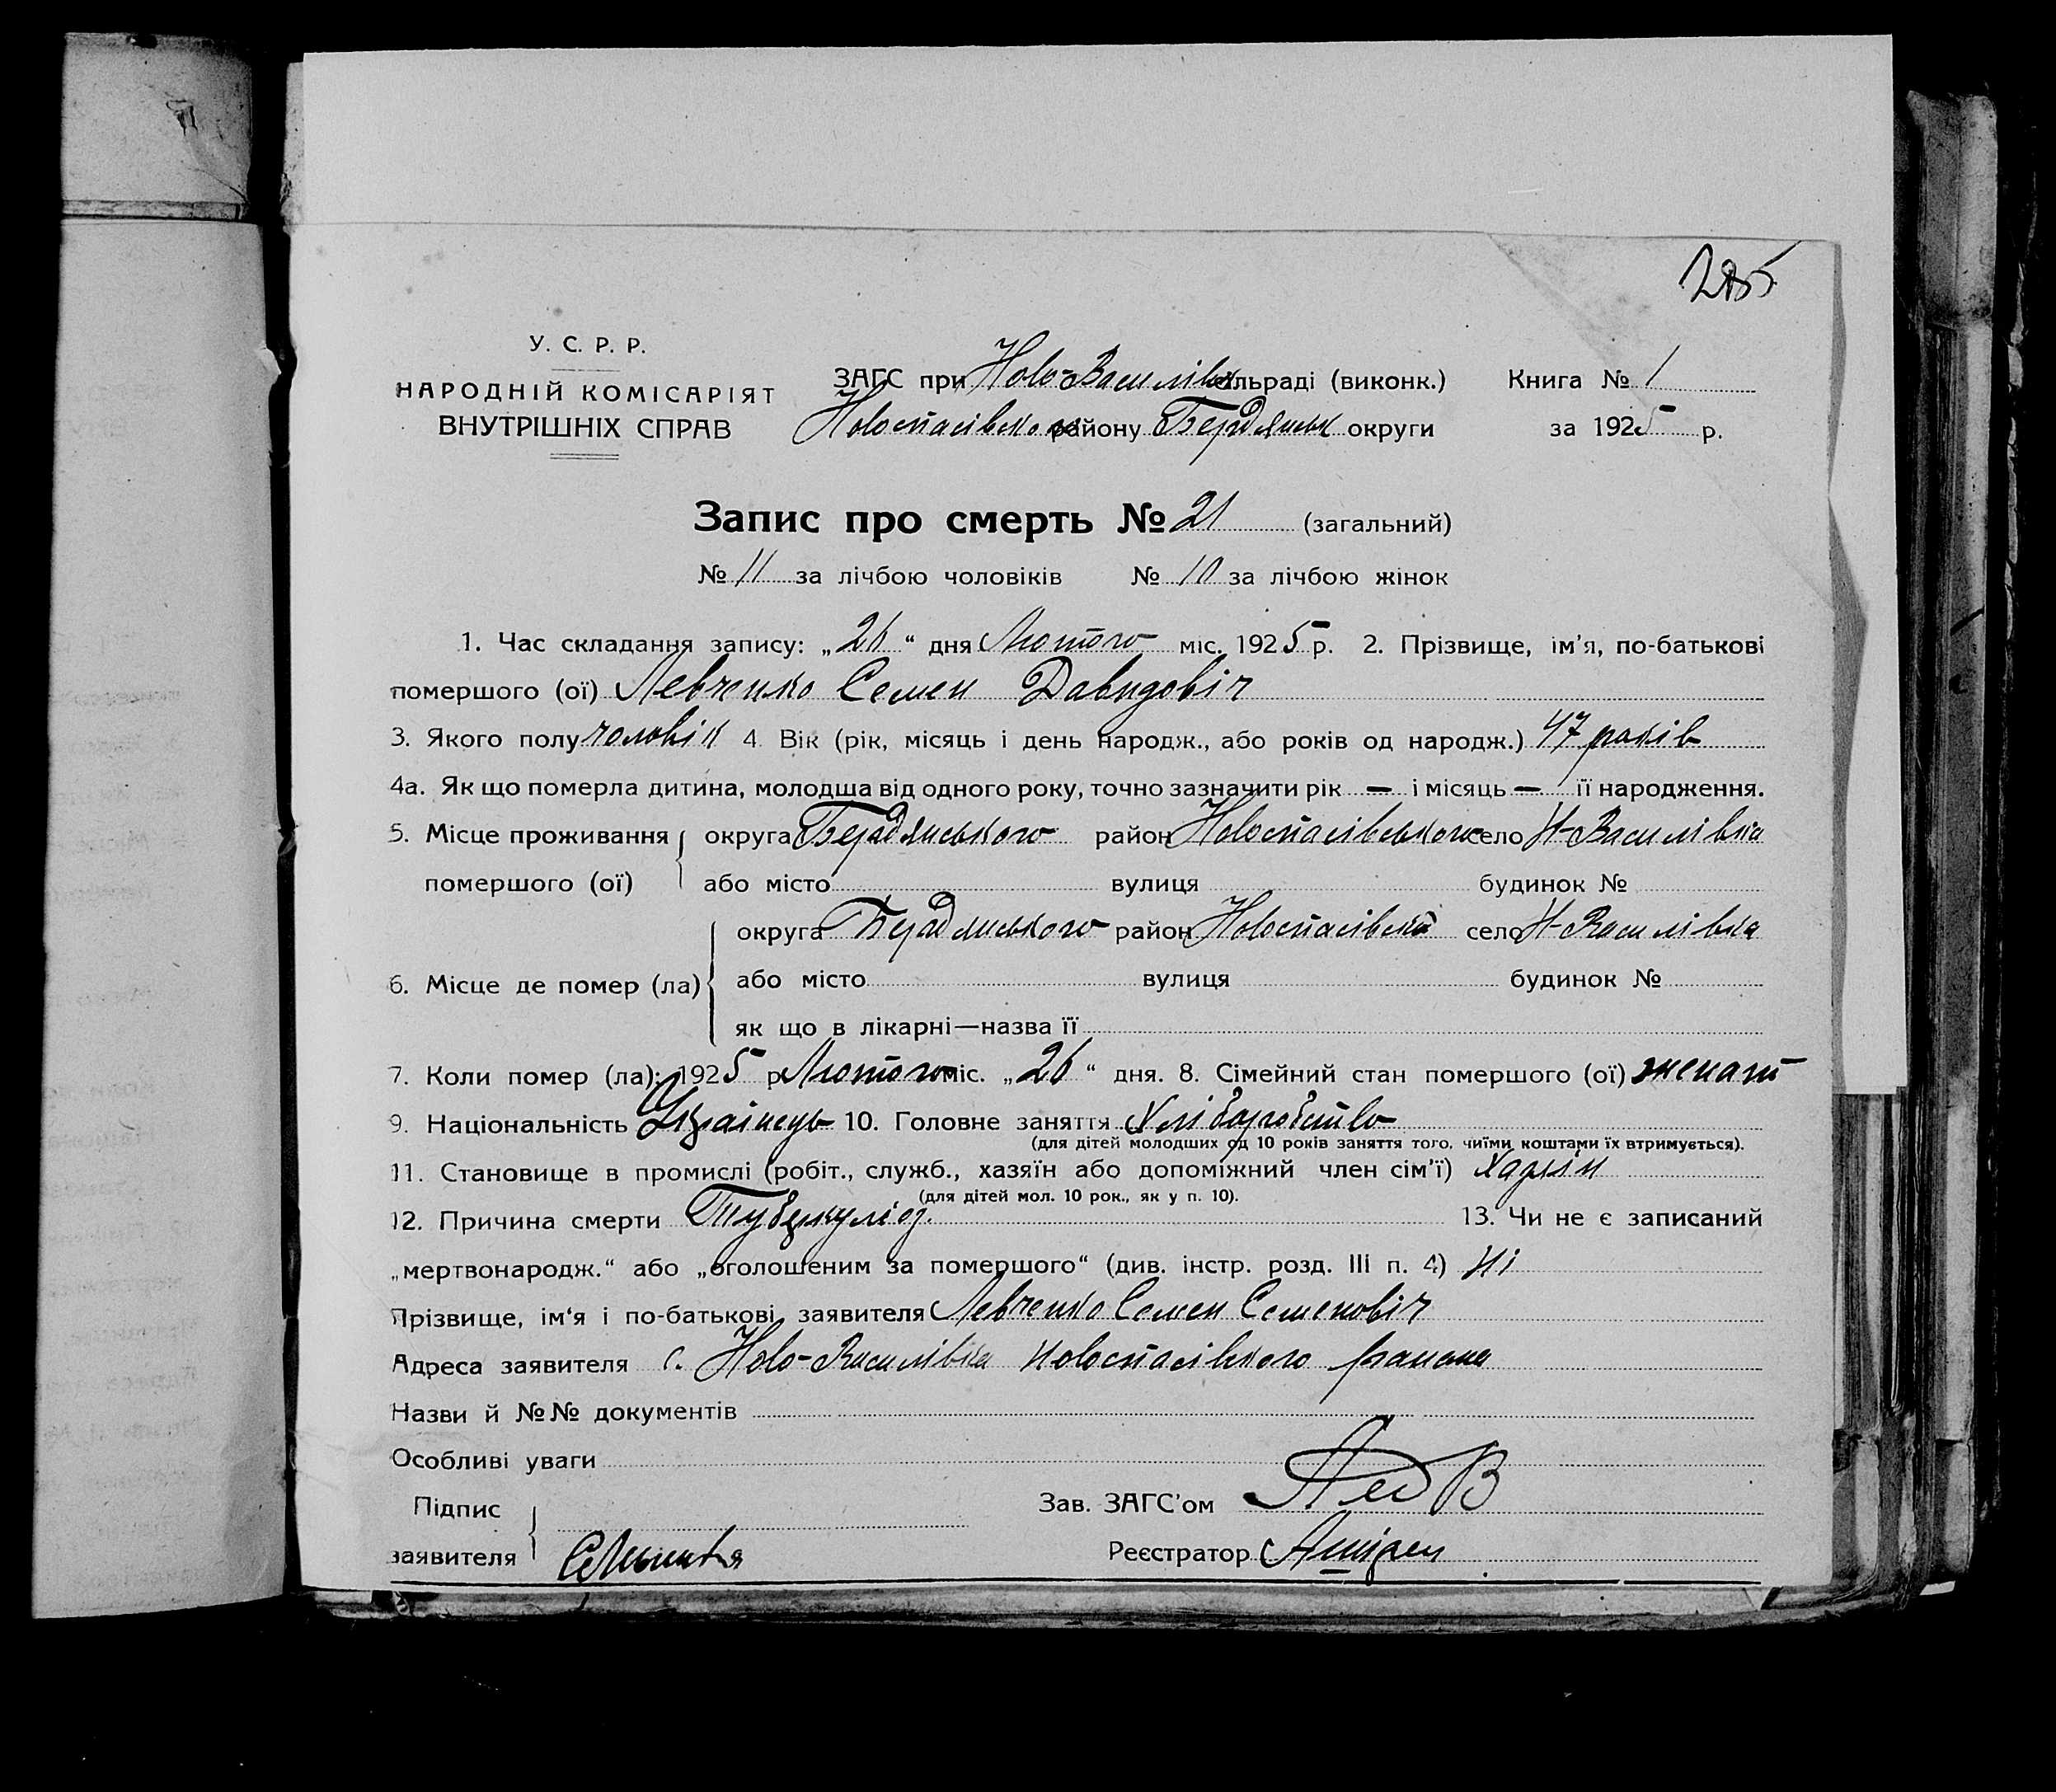 285
У. С. Р. Р.
НАРОДНІЙ КОМІСАРІЯТ
ВНУТРІШНІХ СПРАВ
ЗАГС при Ново-Василівск сільраді (виконк.) Книга № 1
Новоспасівського району Бердянськ округи за 1925 р.
Запис про смерть № 21 (загальний)
№ 11 за лічбою чоловіків № 10 за лічбою жінок
1. Час складання запису: „26“ дня Лютого міс. 1925 р. 2. Прізвище, ім’я, по-батькові
помершого (ої) Левченко Семен Давидовіч
3. Якого полу чоловік 4. Вік (рік, місяць і день народж., або років од народж.) 47 років
4а. Як що померла дитина, молодша від одного року, точно зазначити рік — і місяць — її народження.
5. Місце проживання округа Бердянського район Новоспасівського село Н-Василівка
помершого (ої) або місто вулиця будинок №
округа Бердянського район Новоспасівськ село Н-Василівка
6. Місце де помер (ла) або місто вулиця будинок №
як що в лікарні—назва її
7. Коли помер (ла): 1925 р Лютого міс. „26“ дня. 8. Сімейний стан помершого (ої) женат
9. Національність Українець 10. Головне заняття Хліборобство
(для дітей молодших од 10 років заняття того, чиїми коштами їх втримується).
11. Становище в промислі (робіт., служб., хазяїн або допоміжний член сім’ї) Хазяїн
(для дітей мол. 10 рок., як у п. 10).
12. Причина смерти Туберкульоз. 13. Чи не є записаний
„мертвонародж.“ або „оголошеним за помершого“ (див. інстр. розд. III п. 4) ні
Прізвище, ім‘я і по-батькові заявителя Левченко Семен Семеновіч
Адреса заявителя с. Ново-Василівка Новоспасівського района
Назви й №№ документів
Особливі уваги
Підпис Зав. ЗАГС’ом
заявителя Реєстратор